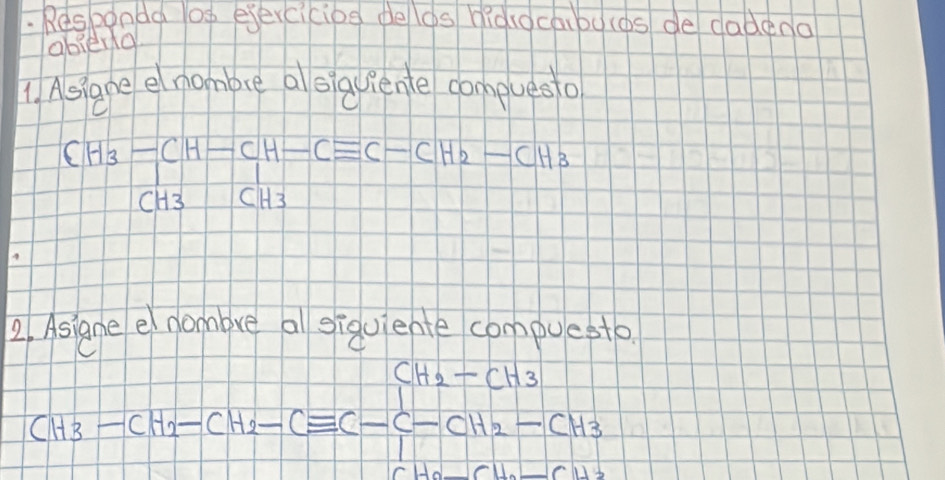 . Responda los ejercicios de los hidrocarburos de cadena
abierta
1. Asigne el nombre al siguiente compuesto
CH3 — CH — CH — C ≡ C — CH2 — CH3
CH3 CH3
2. Asigne el nombre al siguiente compuesto.
CH2 — CH3
CH3 — CH2 — CH2 — C ≡ C — C — CH2 — CH3
CH2 — CH2 — CH3